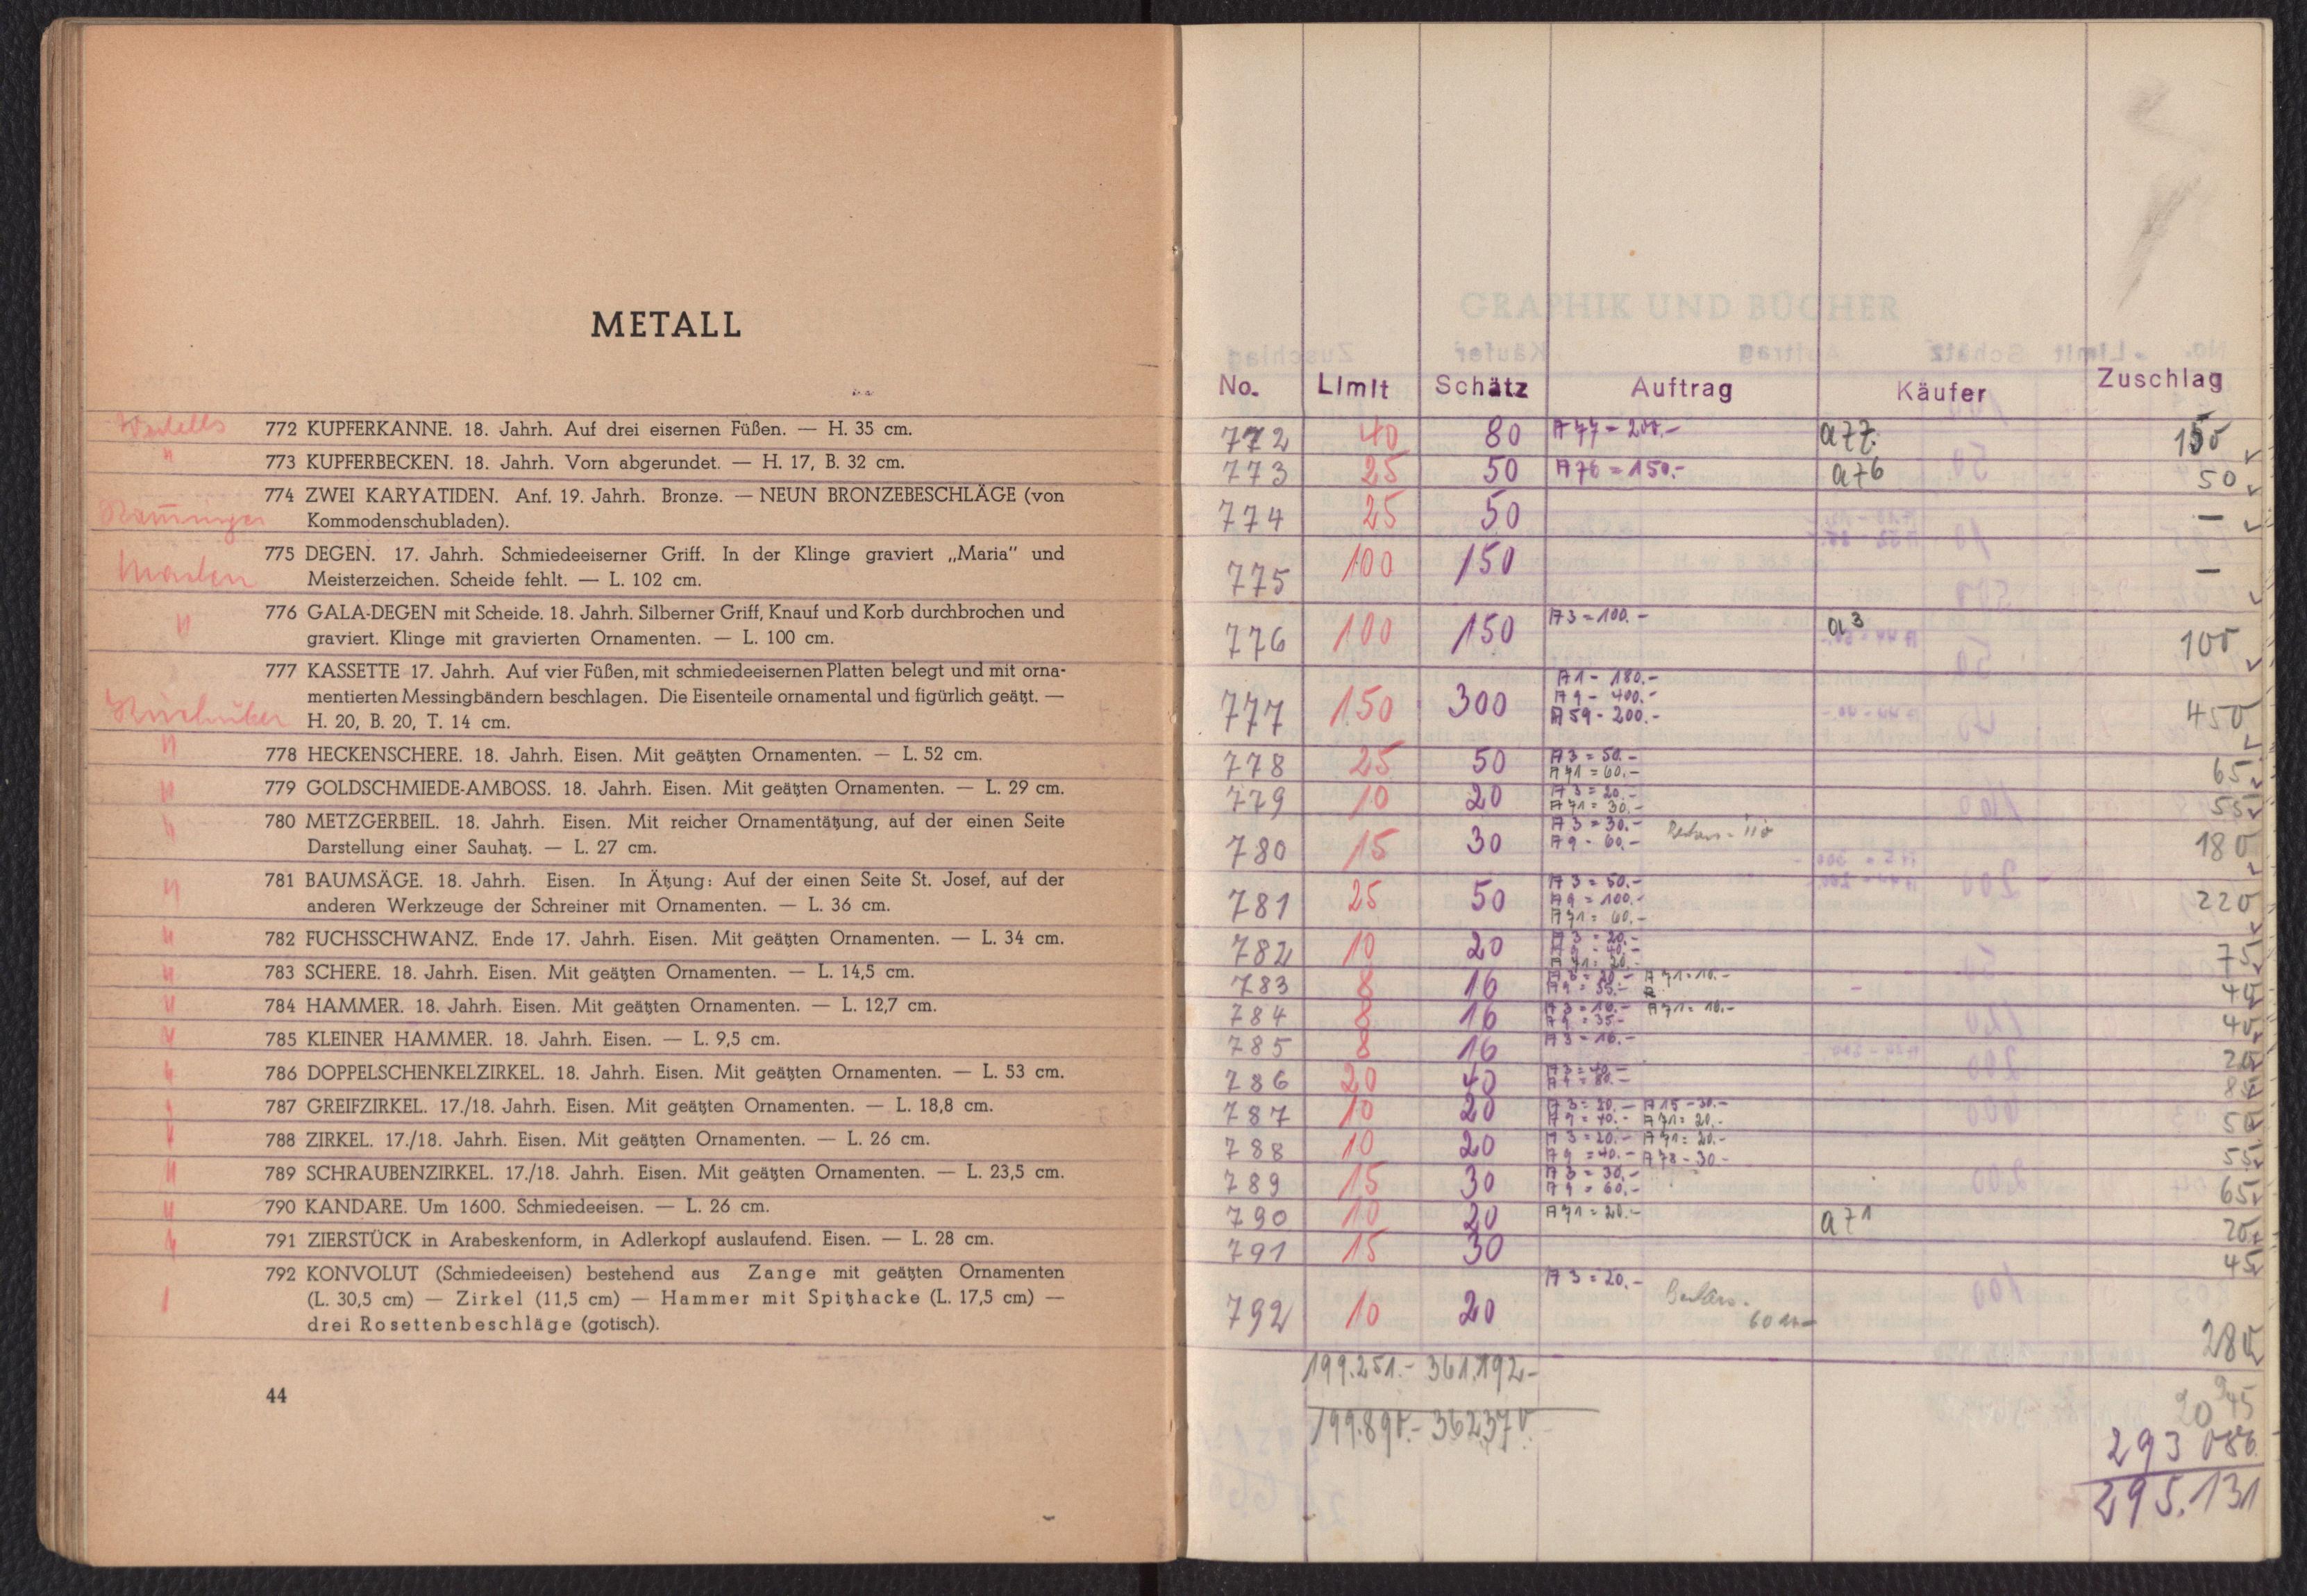 METALL
772 KUPFERKANNE. 18. Jahrh. Auf drei eisernen Füßen. — H. 35 cm.
773 KUPFERBECKEN. 18. Jahrh. Vorn abgerundet. — H. 17, B. 32 cm.
774 ZWEI KARYATIDEN. Anf. 19. Jahrh. Bronze. — NEUN BRONZEBESCHLÄGE (von
Kommodenschubladen).
775 DEGEN. 17. Jahrh. Schmiedeeiserner Griff. In der Klinge graviert „Maria" und
Meisterzeichen. Scheide fehlt. — L. 102 cm.
776 GALA-DEGEN mit Scheide. 18. Jahrh. Silberner Griff, Knauf und Korb durchbrochen und
graviert. Klinge mit gravierten Ornamenten. — L. 100 cm.
777 KASSETTE 17. Jahrh. Auf vier Füßen, mit schmiedeeisernen Platten belegt und mit orna-
mentierten Messingbändern beschlagen. Die Eisenteile ornamental und figürlich geätzt. —
H. 20, B. 20, T. 14 cm.
778 HECKENSCHERE. 18. Jahrh. Eisen. Mit geätzten Ornamenten. — L. 52 cm.
779 GOLDSCHMIEDE-AMBOSS. 18. Jahrh. Eisen. Mit geätzten Ornamenten. — L. 29 cm.
780 METZGERBEIL. 18. Jahrh. Eisen. Mit reicher Ornamentätzung, auf der einen Seite
Darstellung einer Sauhatz. — L. 27 cm.
781 BAUMSÄGE. 18. Jahrh. Eisen. In Ätzung: Auf der einen Seite St. Josef, auf der
anderen Werkzeuge der Schreiner mit Ornamenten. — L. 36 cm.
782 FUCHSSCHWANZ. Ende 17. Jahrh. Eisen. Mit geätzten Ornamenten. — L. 34 cm.
783 SCHERE. 18. Jahrh. Eisen. Mit geätzten Ornamenten. — L. 14,5 cm.
784 HAMMER. 18. Jahrh. Eisen. Mit geätzten Ornamenten. — L. 12,7 cm.
785 KLEINER HAMMER. 18. Jahrh. Eisen. — L. 9,5 cm.
786 DOPPELSCHENKELZIRKEL. 18. Jahrh. Eisen. Mit geätzten Ornamenten. — L. 53 cm.
787 GREIFZIRKEL. 17./18. Jahrh. Eisen. Mit geätzten Ornamenten. — L. 18,8 cm.
788 ZIRKEL. 17./18. Jahrh. Eisen. Mit geätzten Ornamenten. — L. 26 cm.
789 SCHRAUBENZIRKEL. 17./18. Jahrh. Eisen. Mit geätzten Ornamenten. — L. 23,5 cm.
790 KANDARE. Um 1600. Schmiedeeisen. — L. 26 cm.
791 ZIERSTÜCK in Arabeskenform, in Adlerkopf auslaufend. Eisen. — L. 28 cm.
792 KONVOLUT (Schmiedeeisen) bestehend aus Zange mit geätzten Ornamenten
(L. 30,5 cm) — Zirkel (11,5 cm) — Hammer mit Spitzhacke (L. 17,5 cm) —
drei Rosettenbeschläge (gotisch).
44
No. Limit Schätz Auftrag Käufer Zuschlag
772 40 80 A 77 = 200.- a77. 150
773 25 50 A 76 = 150.- a76 50
774 25 50 —
775 100 150 —
776 100 150 A 3 = 100.- a3 100
777 150 300 A 1 - 180.- 450
A 9 - 400.-
A 59 - 200.-
778 25 50 A 3 = 50.- 65
A 71 = 60.-
779 10 20 A 3 = 20.- 55
A 71 = 30.-
780 15 30 A 3 = 30.- 180
A 9 - 60.-
781 25 50 A 3 = 50.- 220
A 9 = 100.-
A 71 = 60.-
782 10 20 A 3 = 20.- 75
A 9 = 40.-
A 71 = 20.-
783 8 16 A 71 = 10.- 40
784 8 16 A 3 = 10.- A 71 = 10.- 40
A 9 = 35.-
785 8 16 A 3 - 16.- 20
786 20 40 A 3 = 40.- 85
A 9 = 80.-
787 10 20 A 3 = 20.- A 15 - 30.- 50
A 9 = 40.- A 71 = 20.-
788 10 20 A 3 = 20.- A 71 = 20.- 55
A 9 = 40.- A 78 - 30 -
789 15 30 A 3 = 30.- 65
A 9 = 60.-
790 10 20 A 71 = 20.- a71 20
791 15 30 45
792 10 20 A 3 = 20.- 280
199.251.- 361.192-
199.890.- 362370.-
2045
293 086.
295.131